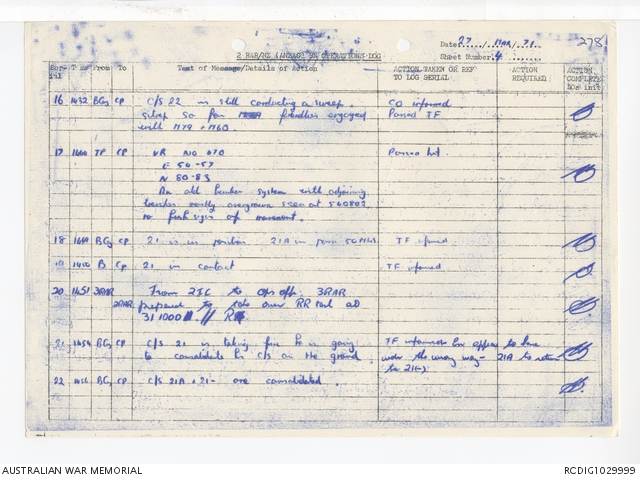 2 RAR/NZ (ANZAC) BN OPERATIONS LOG
Date 27 / MAR / 71
278
Sheet Number 4
Serial Time From To Text of Message/Details of Action ACTION TAKEN OR REF TO LOG SERIAL ACTION REQUIRED ACTION COMPLETE
16 1432 CP C/S 22 is still conducting a sweep. CO informed
sitrep so far enemy engaged Passed TF
with M79 + M60.
17 TF CP VR NO 070 Passed Int.
E 54-57
N 80-83
An old bunker system with adjoining
trenches mostly overgrown seen at 560802
no fresh signs of movement.
18 CP 21 is in position 21A in posn TF informed
19 1450 B CP 21 in contact TF informed
20 1451 3RAR From 2IC to Ops offr. 3RAR
2RAR prepared to take over RR tasl at
311000
21 1454 CP C/S 21 is taking fire he is going TF informed
to consolidate his C/S on the ground. under the wrong way - 21A to return
to 21(-)
22 CP C/S 21A + 21- are consolidated.
AUSTRALIAN WAR MEMORIAL
RCDIG1029999